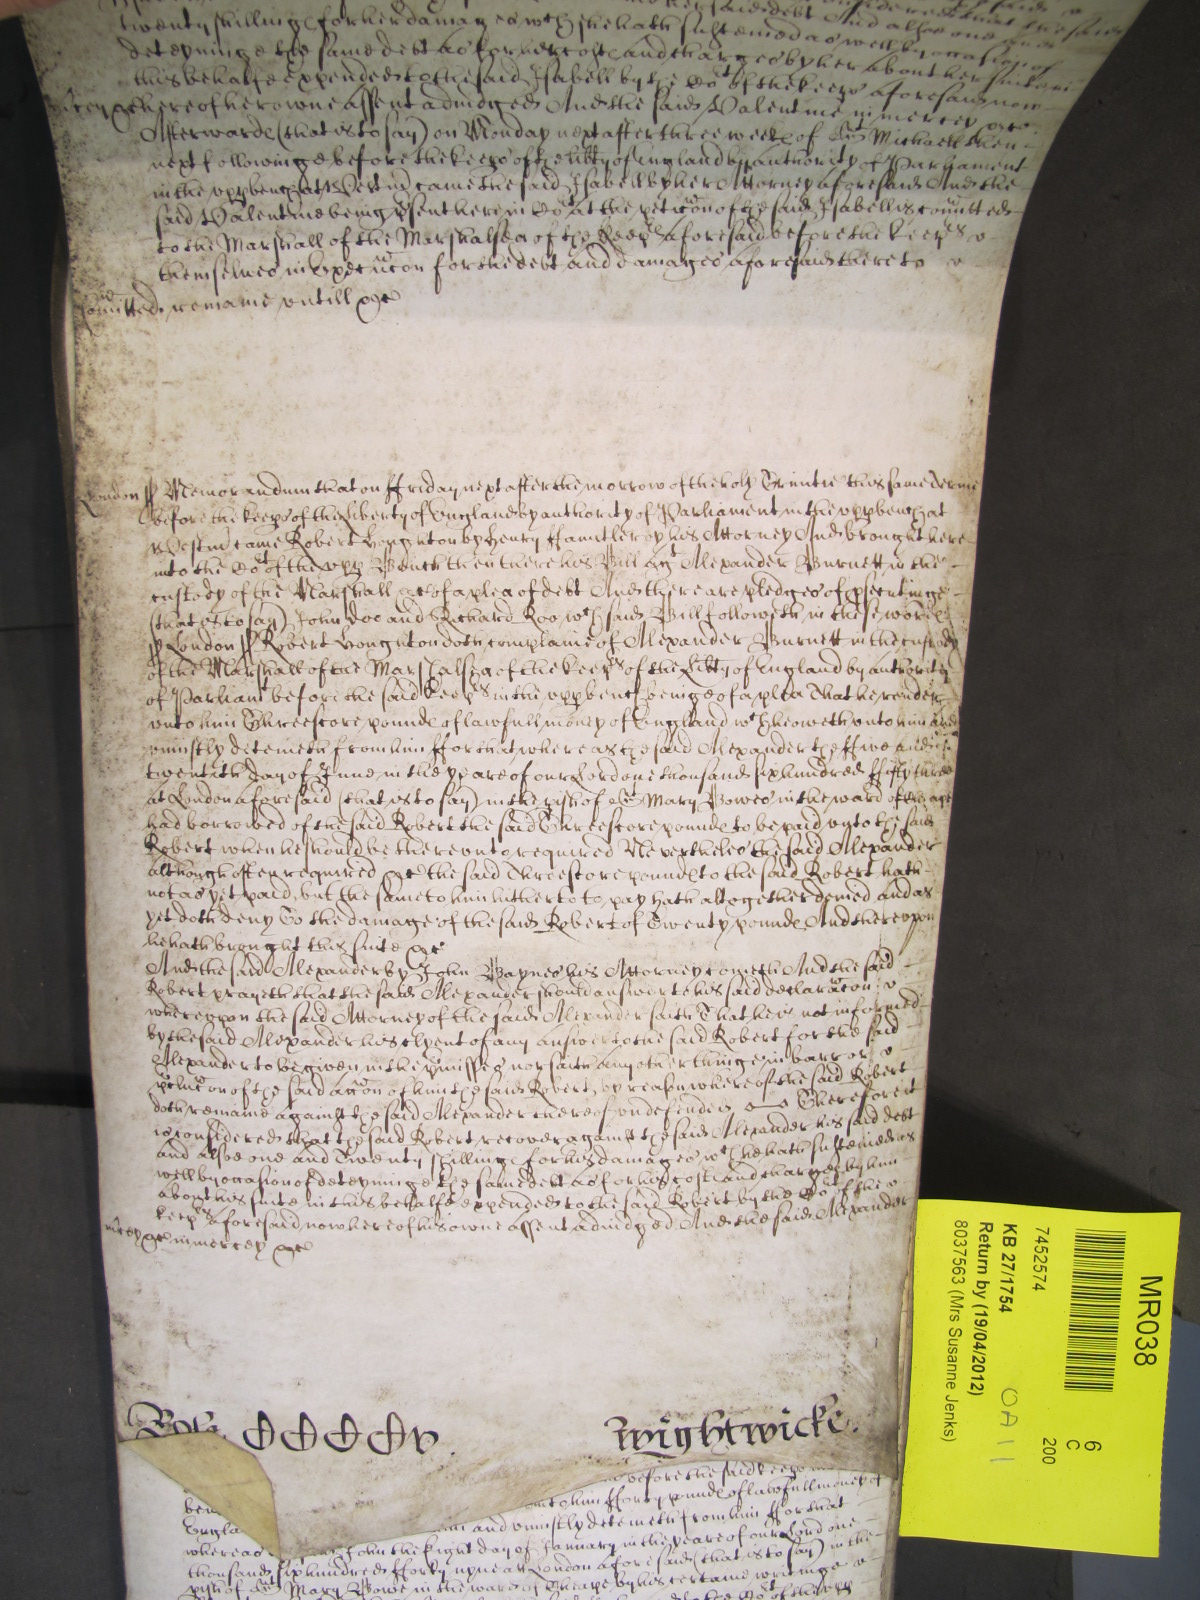 twenty shillinge for her damages wch she hath susteined as well by occasion of
deteyninge the same debt as for her coste and charges by her about her suite in
this behalfe expended to the said Isabell by the Cort of the keeps aforesaid now
here of her owne assent adiudged And the said Valentine in mercy &c
Afterwarde (that is to say) on Monday next after three weeke of St Michaell then
next followinge before the keeps of the libty of England by authority of Parliament
in the vpp bench at Westmr came the said Isabell by her Attorney aforesaid And the
said Valentine being psent here in Cort at the peticon of the said Isabell is comitted
to the Marshall of the Marshalsea of the keeps aforesaid before the keeps
themselues in Execucon for the debt and damages aforesaid there to
comitted remaine vntill &c
London ss Memorandum that on ffriday next after the morrow of the holy Trinitie this same terme
before the keeps of the Liberty of England by authority of Parliament in the vpp bench at
Westmr came Robert Houghton by Henry ffauntleroy his Attorney And brought here
into the Cort of the vpp Bench then there his Bill agt Alexander Burnett in the
custody of the Marshall &c of a plea of debt And there are pledges of psecutinge
(that is to say) John Doo and Richard Roo wch said Bill followeth in these worde
ss London ss Robert Houghton doth complaine of Alexander Burnett in the custody
of the Marshall of the Marshalsea of the keeps of the Libty of England by authority
of Parliamt before the said keeps in the vpp bench beinge of a plea That he render
vnto him Threescore pounde of lawfull money of England wch he oweth vnto him and
vniustly deteineth from him ffor that whereas the said Alexander the ffive and
twentith day of June in the yeare of our Lord one thousand six hundred ffifty three
at London aforesaid (that is to say) in the pish of St Mary Bowes in the ward of Cheape
had borrowed of the said Robert the said Threescore pounde to be paid vnto the said
Robert when he should be therevnto required Neverthelesse the said Alexander
although often required &c the said Threescore pounde to the said Robert hath
not as yet paid, but the same to him hitherto to pay hath altogether denied and as
yet doth deny To the damage of the said Robert of Twenty pounde And therevpon
he hath brought this suite &c
And the said Alexander by John Baynes his Attorney cometh And the said
Robert prayeth that the said Alexander should answer to his said declaracon
wherevpon the said Attorney of the said Alexander saith That he is not informed
by the said Alexander his clyent of any answer to the said Robert for the said
Alexander to be given in the pmisses nor saith any other thinge in barr or
pclucon of the said accon of him the said Robert, by reason whereof the said Robert
doth remaine against the said Alexander thereof vndefended Therefore it
is considered that the said Robert recover against the said Alexander his said debt
and alsoe one and Twenty shillinge for his damages wch he hath susteined as
well by occasion of deteyninge the same debt as for his coste and charges by him
about his suite in this behalfe expended to the said Robert by the Cort of the
keeps aforesaid now here of his owne assent adiudged And the said Alexander
mcy &c in mercy &c
Wightwicke.
before the said keeps
vnto him fforty pounde of lawfull money of
Engla and vniustly deteineth from him ffor that
whereas John the Eight day of January in the yeare of our Lord one
thousand six hundred fforty nyne at London aforesaid (that is to say) in the
pish of St Mary Bowe in the ward of Cheape by his certaine writinge
MR038
6
C
200
7452574
KB 27/1754
Return by (19/04/2012)
8037563 (Mrs Susanne Jenks)